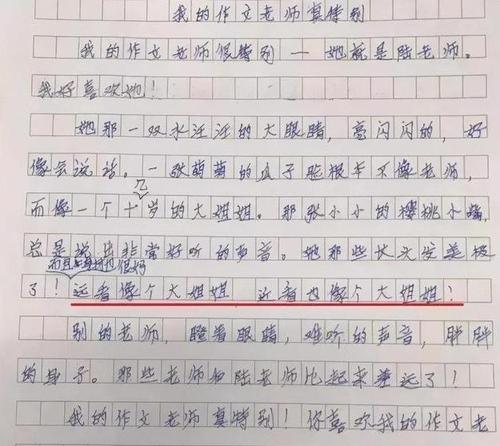 我的作文老师真特别
我的作文老师很特别——她就是陆老师。
我好喜欢她！
她那一双水汪汪的大眼睛，亮闪闪的，好
像会说话。一张萌萌的瓜子脸根本不像老师，
几
而像一个十岁的大姐姐。那张小小的樱桃小嘴，
总是说出非常好听的声音。她那些长头发美极
而且 也很好
了！远看像个大姐姐 近看也像个大姐姐！
别的老师，瞪着眼睛，难听的声音，胖胖
的身子。那些老师和陆老师比起来差远了！
我的作文老师真特别！你喜欢我的作文老